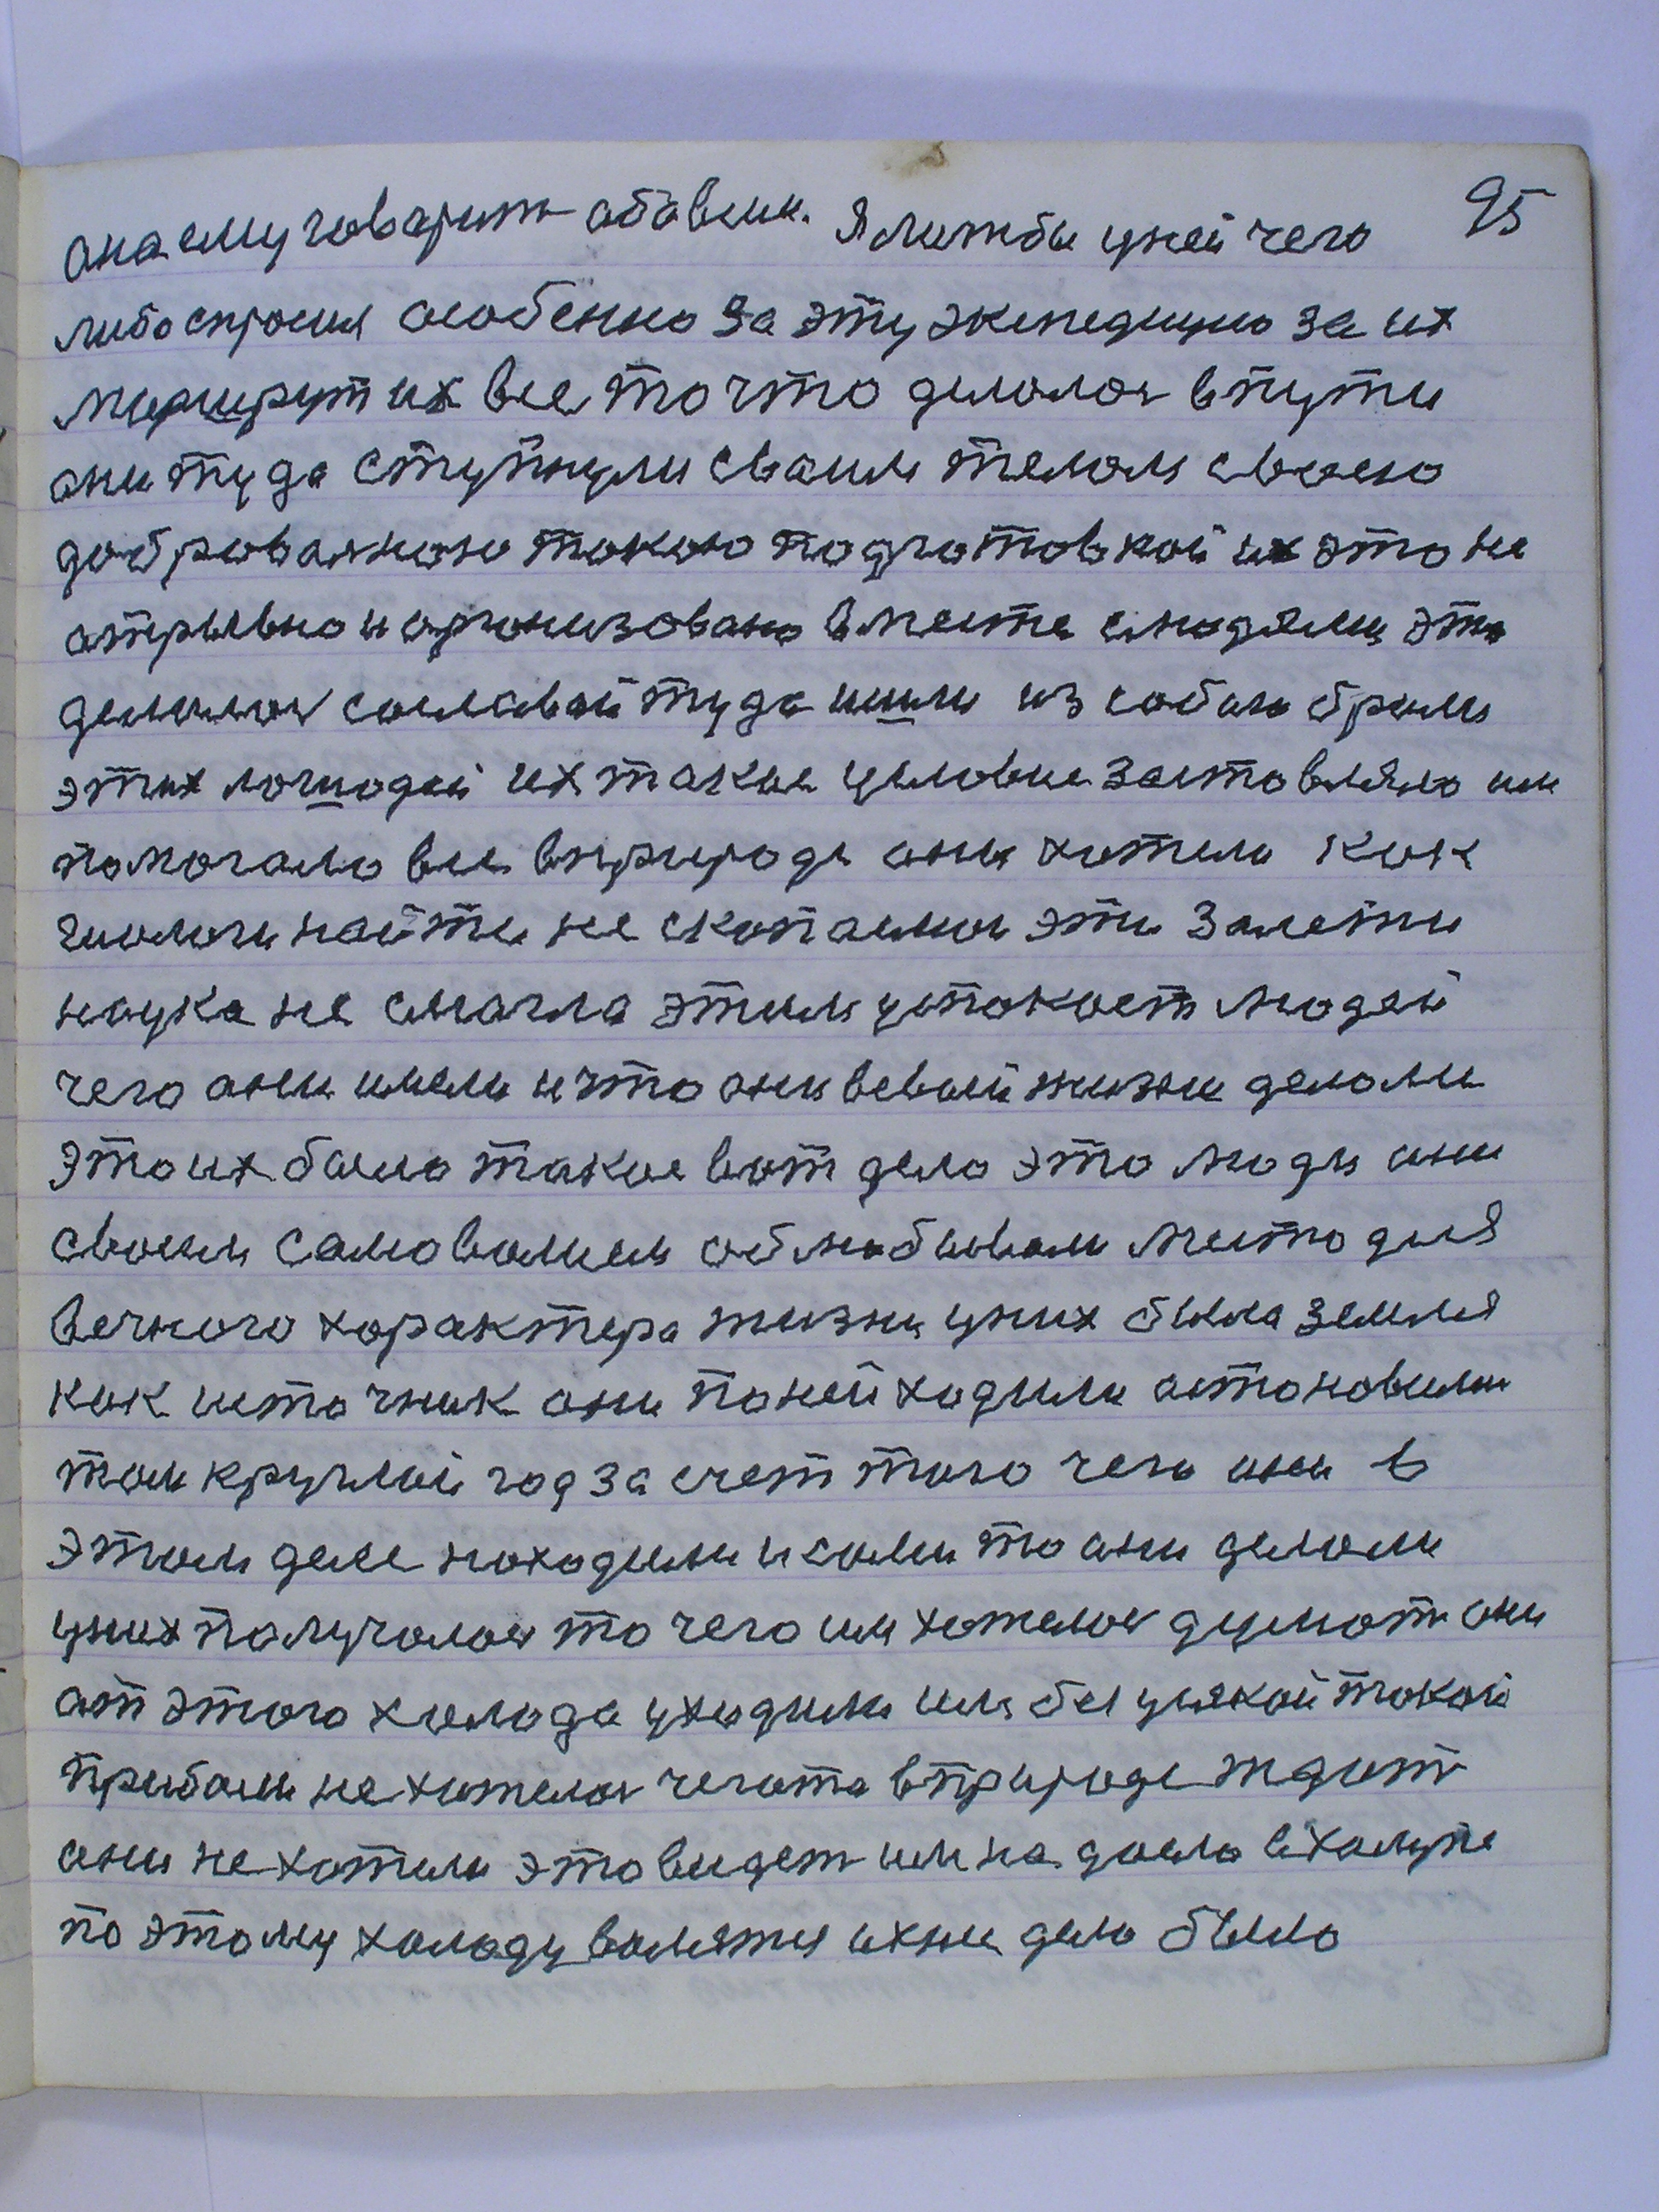 95
она ему говорит обовсим. Я литбы уней чего
либо спросил особенно за эту экспедицию за их
маршрут их все то что делолос впути
они туда ступнули своим телом своею
добровалною токою подготовкой их это не
отрывно и организовано вместе слюдями это
делолос сославой туда ишли из собою брали
этих лошодей их такие условие заставляло им
помогало все вприроде они хотели как
гиологи найти не скопаемои эти залежи
наука не смогла этим успокоет людей
чего они имели и что они всвоей жизни делоли
это их было такое вот дело это люди они
своим самоволием облюбывали место для
вечного характера жизни уних была земля
как источник они поней ходили остоновили
там круглый год за счет того чего они в
этом деле находили искали то они делоли
уних получолос то чего им хотелос думат они
от этого холода уходили им бы усякой токой
прибали не хотелос чегото вприроде ждат
они не хотели это видет им на доело вхолупе
по этому холоду волятся ихние дело было